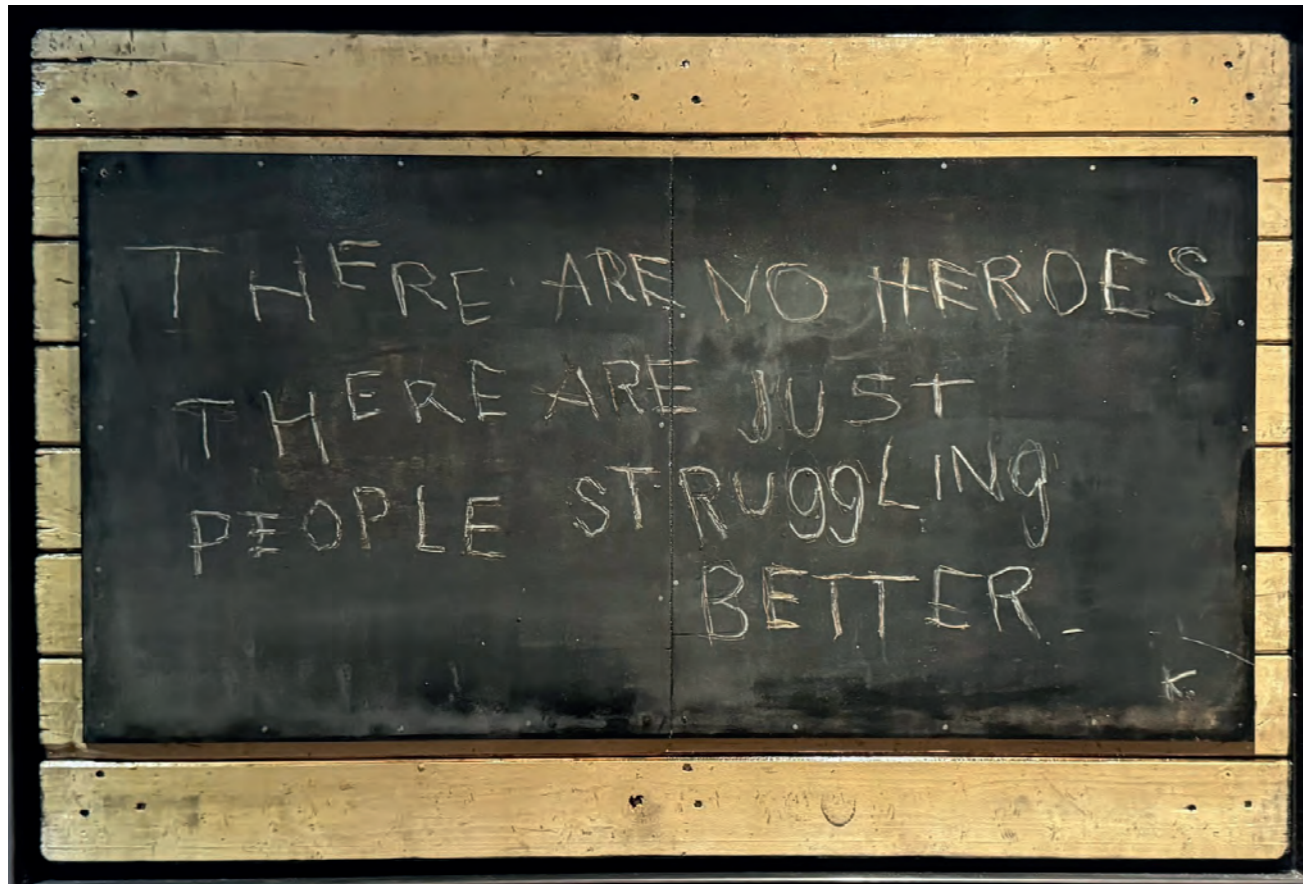 THERE ARE NO HEROES
THERE ARE JUST
PEOPLE STRUggLINg
BETTER.
K.